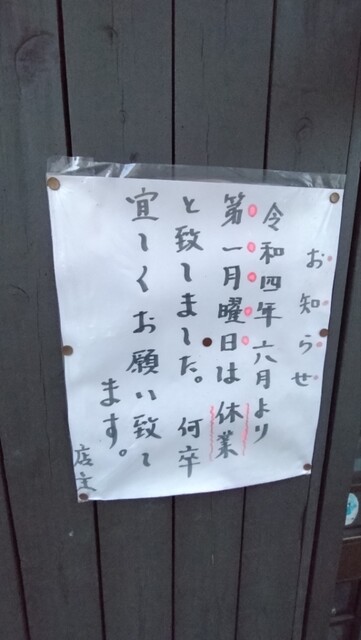 お知らせ
令和四年六月より
第一月曜日は休業
と致しました。何卒
宜しくお願い致し
ます。
店主